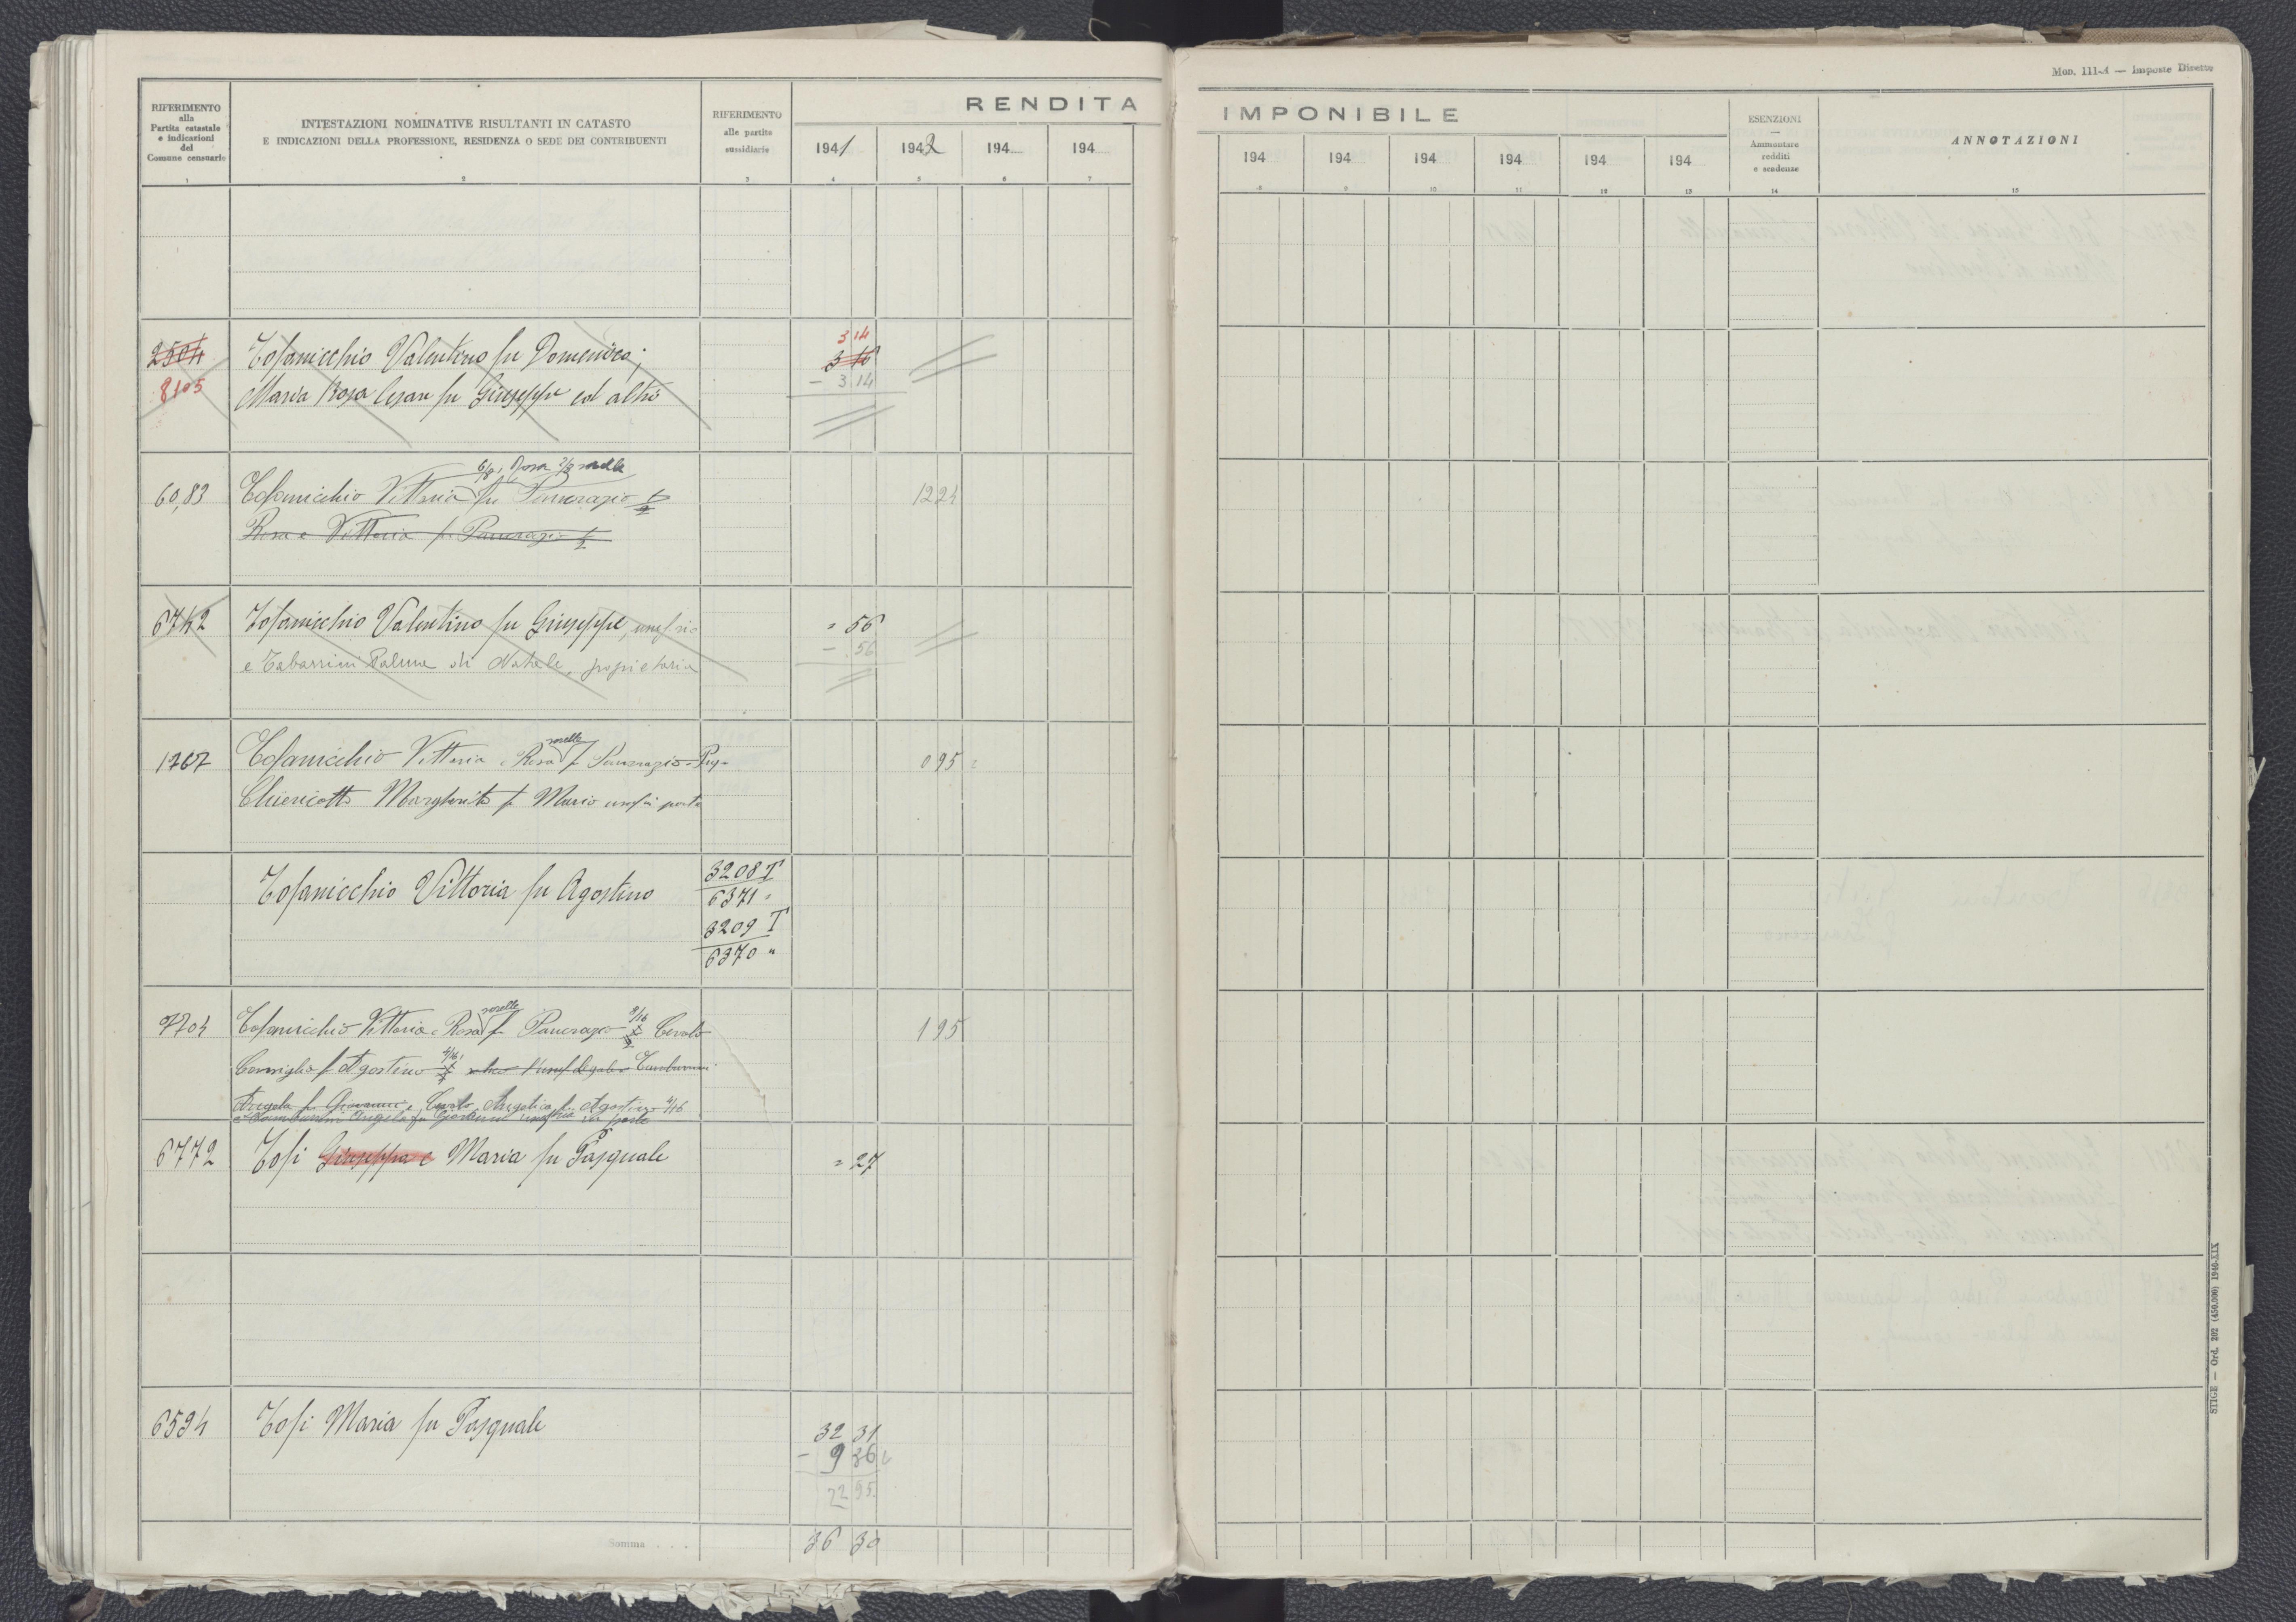 Mod. 111-A — Imposte Dirette
RIFERIMENTO
alla
Partita catastale
e indicazioni
del
Comune censuario
INTESTAZIONI NOMINATIVE RISULTANTI IN CATASTO
E INDICAZIONI DELLA PROFESSIONE, RESIDENZA O SEDE DEI CONTRIBUENTI
RIFERIMENTO
alle partite
sussidiarie
RENDITA IMPONIBILE
1941 1942 194 194 194 194 194 194 194 194
ESENZIONI
—
Ammontare
redditi
e scadenze
ANNOTAZIONI
1 2 3 4 5 6 7 8 9 10 11 12 13 14 15
3 14
2504 Tofanicchio Valentino fu Domenico; 3 16
8105 Maria Rosa Cesare fu Giuseppe ed altri - 3 14
6/8, Rosa 2/8 sorelle
6083 Tofanicchio Vittoria fu Pancrazio 1/2 12 24
Rosa e Vittoria fu Pancrazio 1/2
6742 Tofanicchio Valentino fu Giuseppe, usufrio = 56
e Tabarrini Palma di Natale, proprietaria - 56
sorelle
1767 Tofanicchio Vittoria e Rosa f Pancrazio - Prop - 0 95
Chiericotti Margherita f Mario usufr. parte
Tofanicchio Vittoria fu Agostino 3208 T
6371 "
3209 T
6370 "
sorelle 8/16
7704 Tofanicchio Vittoria e Rosa f Pancrazio Cerulo 1 95
Consiglio f Agostino 4/16
Angela fu Giovanni e Cerulo Angelica fu Agostino 4/16
Tamburrini Angela fu Giovanni
6772 Tosi Giuseppa e Maria fu Pasquale = 27
6594 Tosi Maria fu Pasquale 32 31
- 9 36
22 95
Somma . . . 36 30
STIGE — Ord. 202 (450.000) 1940-XIX